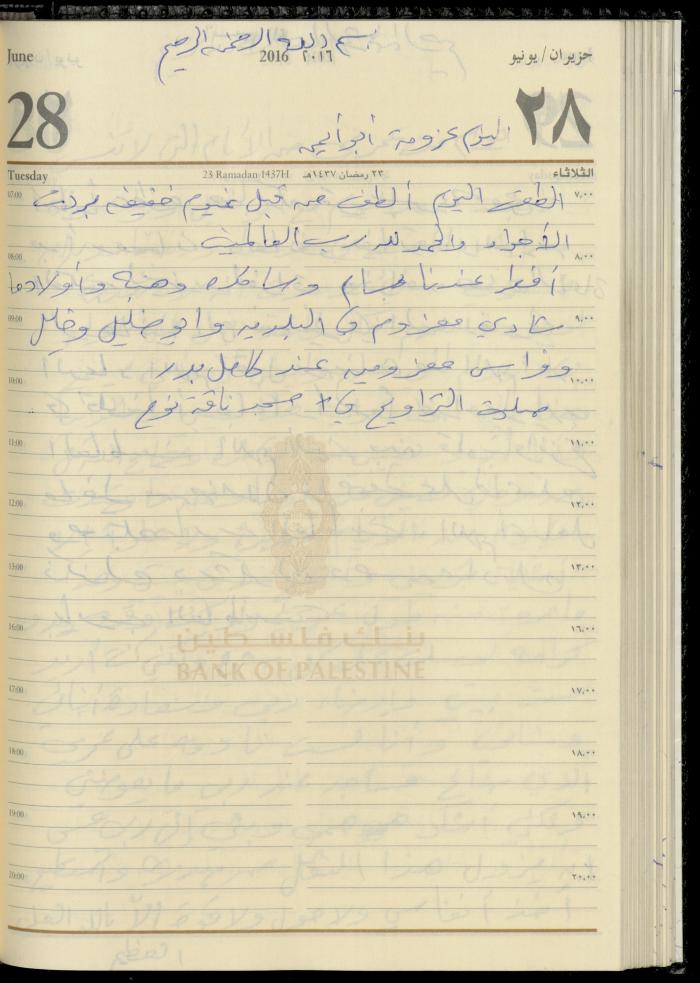 بسم الله الرحمن الرحيم
June 2016 ٢٠١٦ حزيران / يونيو
28 ٢٨
اليوم عزومة أبو أيمن
Tuesday 23 Ramadan 1437H ٢٣ رمضان ١٤٣٧هـ الثلاثاء
07:00 الطقس اليوم ألطف من قبل غيوم خفيفة بردت ٧,٠٠
الأجواء والحمد لله رب العالمين
08:00 ٨,٠٠
أفطر عندنا وهبة وأولادها
09:00 شادي معزوم في البلدية وابو خليل وخليل ٩,٠٠
وفراس معزومين عند كامل بدر
10:00 ١٠,٠٠
صلاة التراويح في مسجد ناقة نوح
11:00 ١١,٠٠
12:00 ١٢,٠٠
13:00 ١٣,٠٠
بنك فلسطين
16:00 ١٦,٠٠
BANK OF PALESTINE
17:00 ١٧,٠٠
18:00 ١٨,٠٠
19:00 ١٩,٠٠
20:00 ٢٠,٠٠